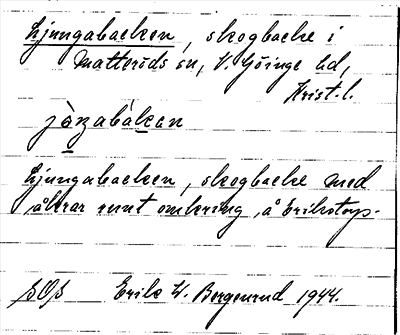 Ljungabacken, skogbacke i
Matteröds sn, V. Göinge hd,
Krist. l.
jòṇabàken
Ljungabacken, skogbacke med
åkrar runt omkring, å Erikstorp.
SOS Erik W. Bergenrud 1944.